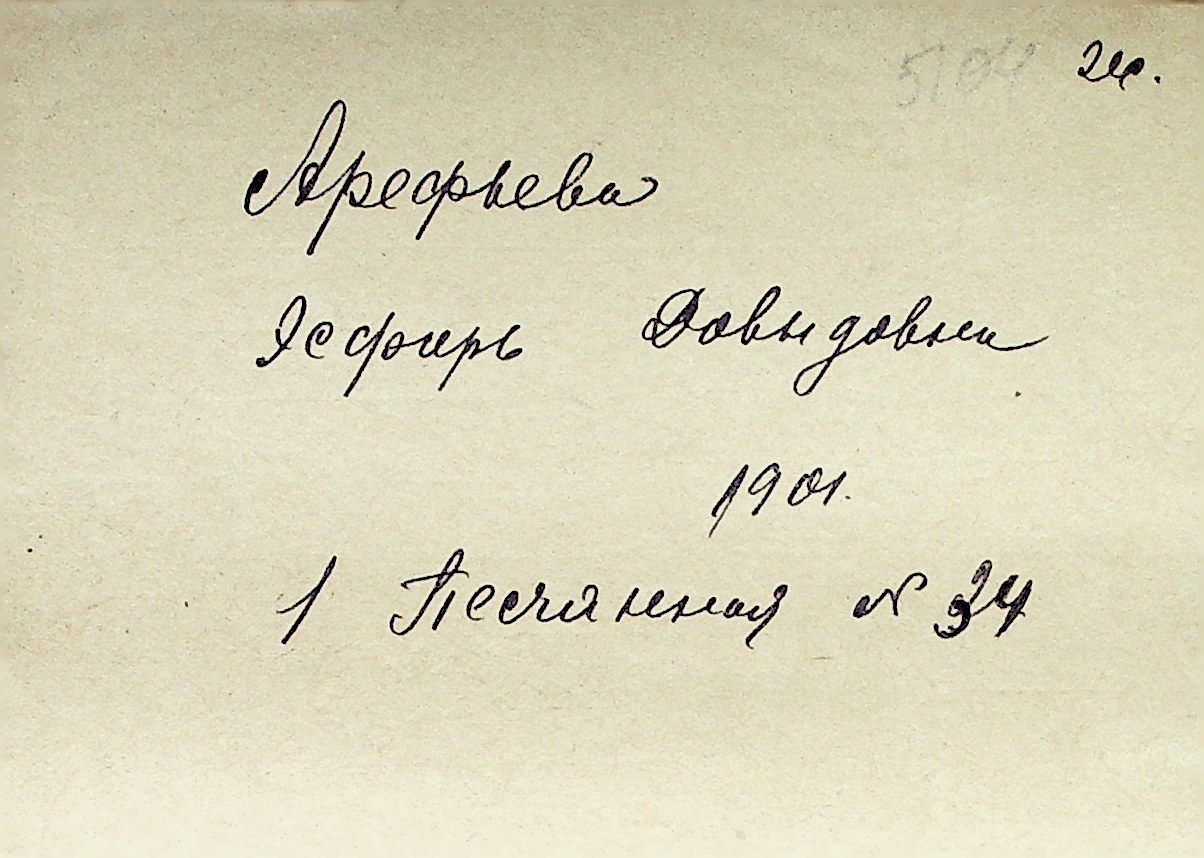 5104 2й.
Арефьева
Эсфирь Довыдовна
1901.
1 Песчянная № 34